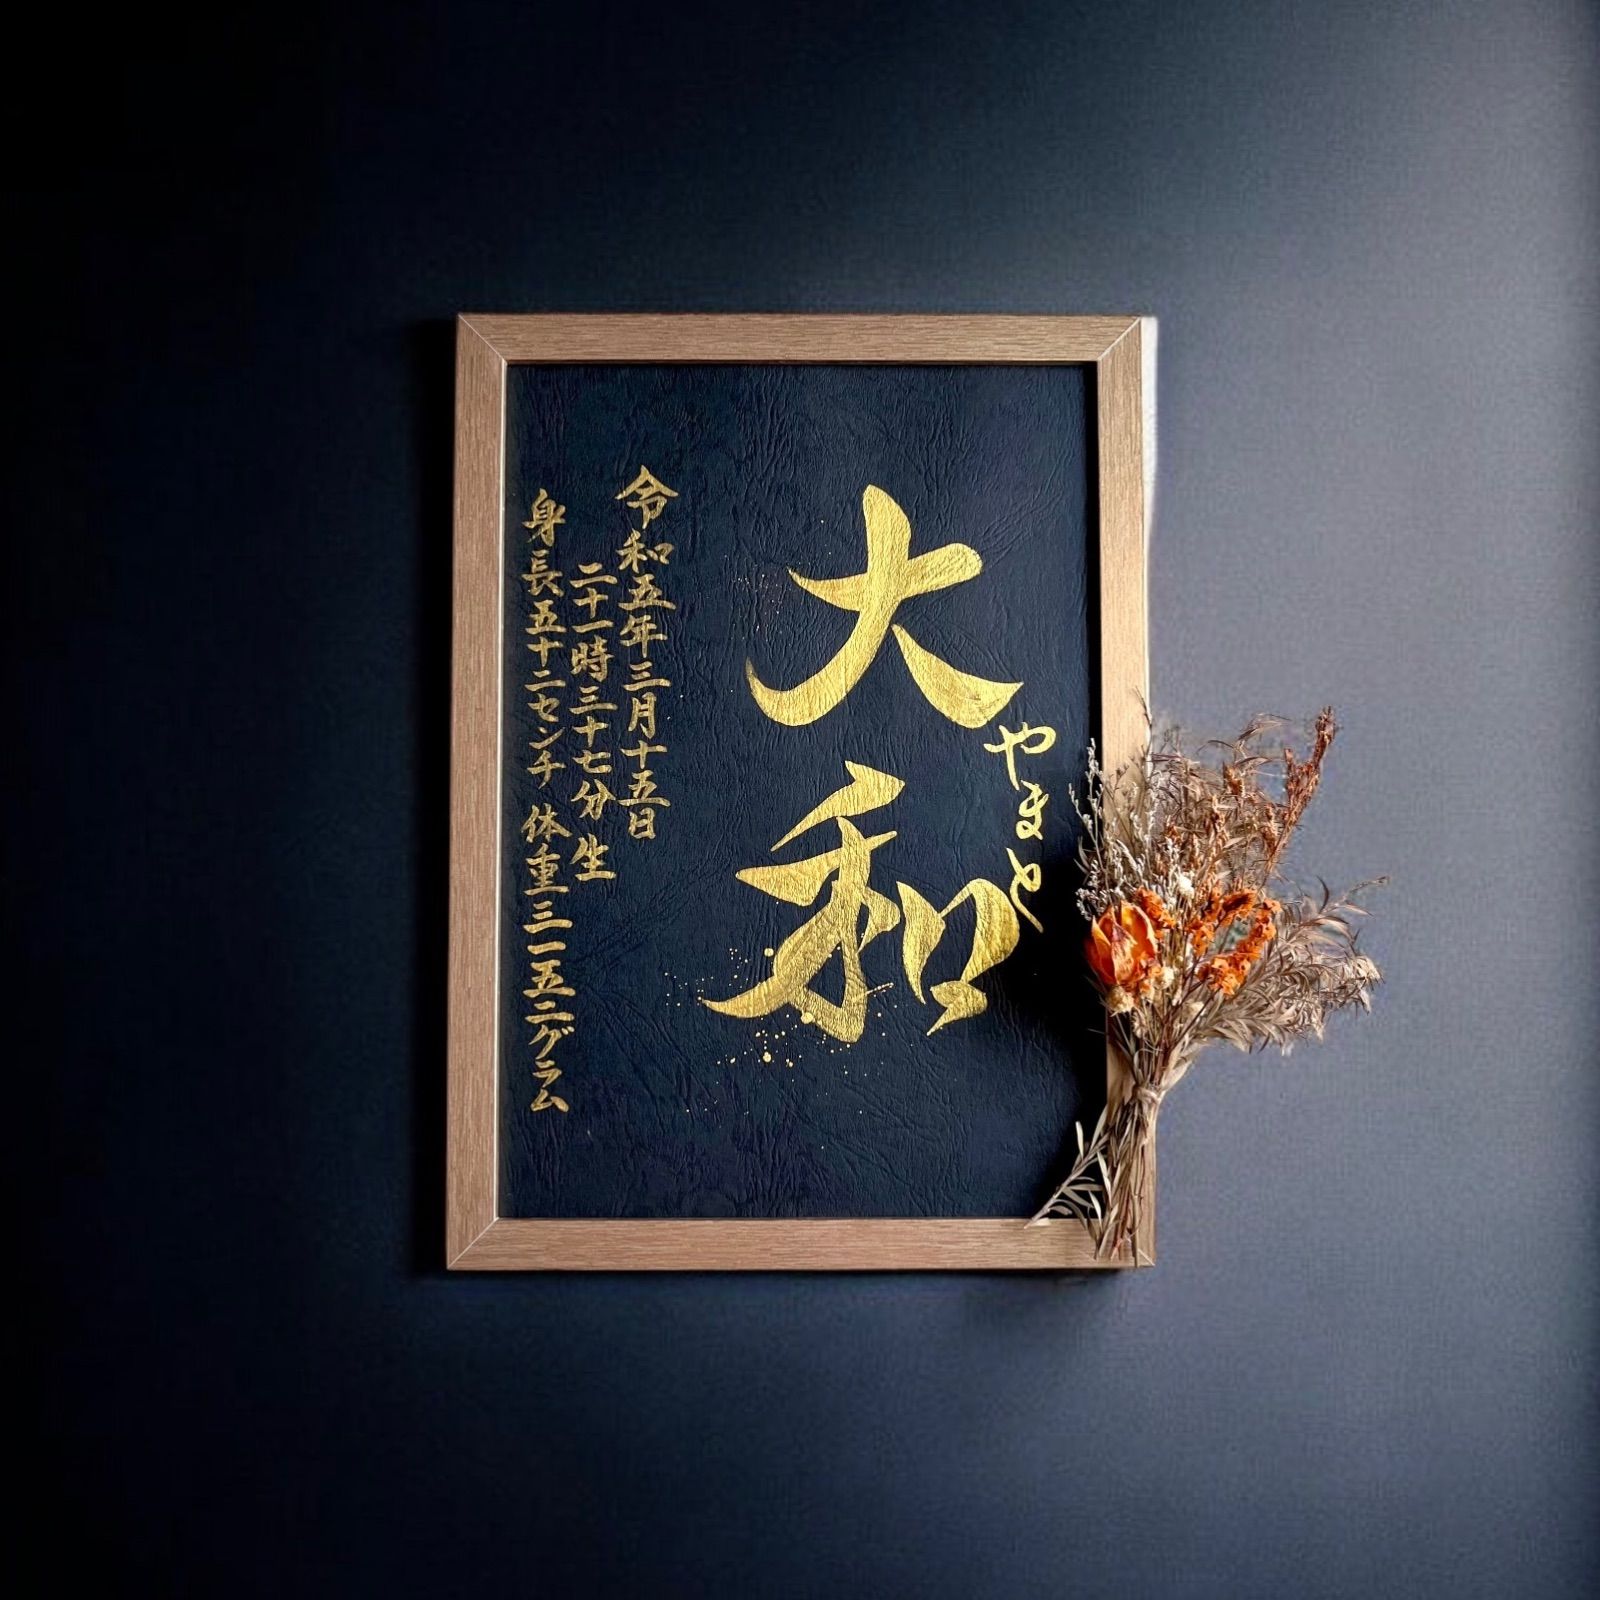 大和
やまと
令和五年三月十五日
二十一時三十七分生
身長五十二センチ 体重三一五二グラム